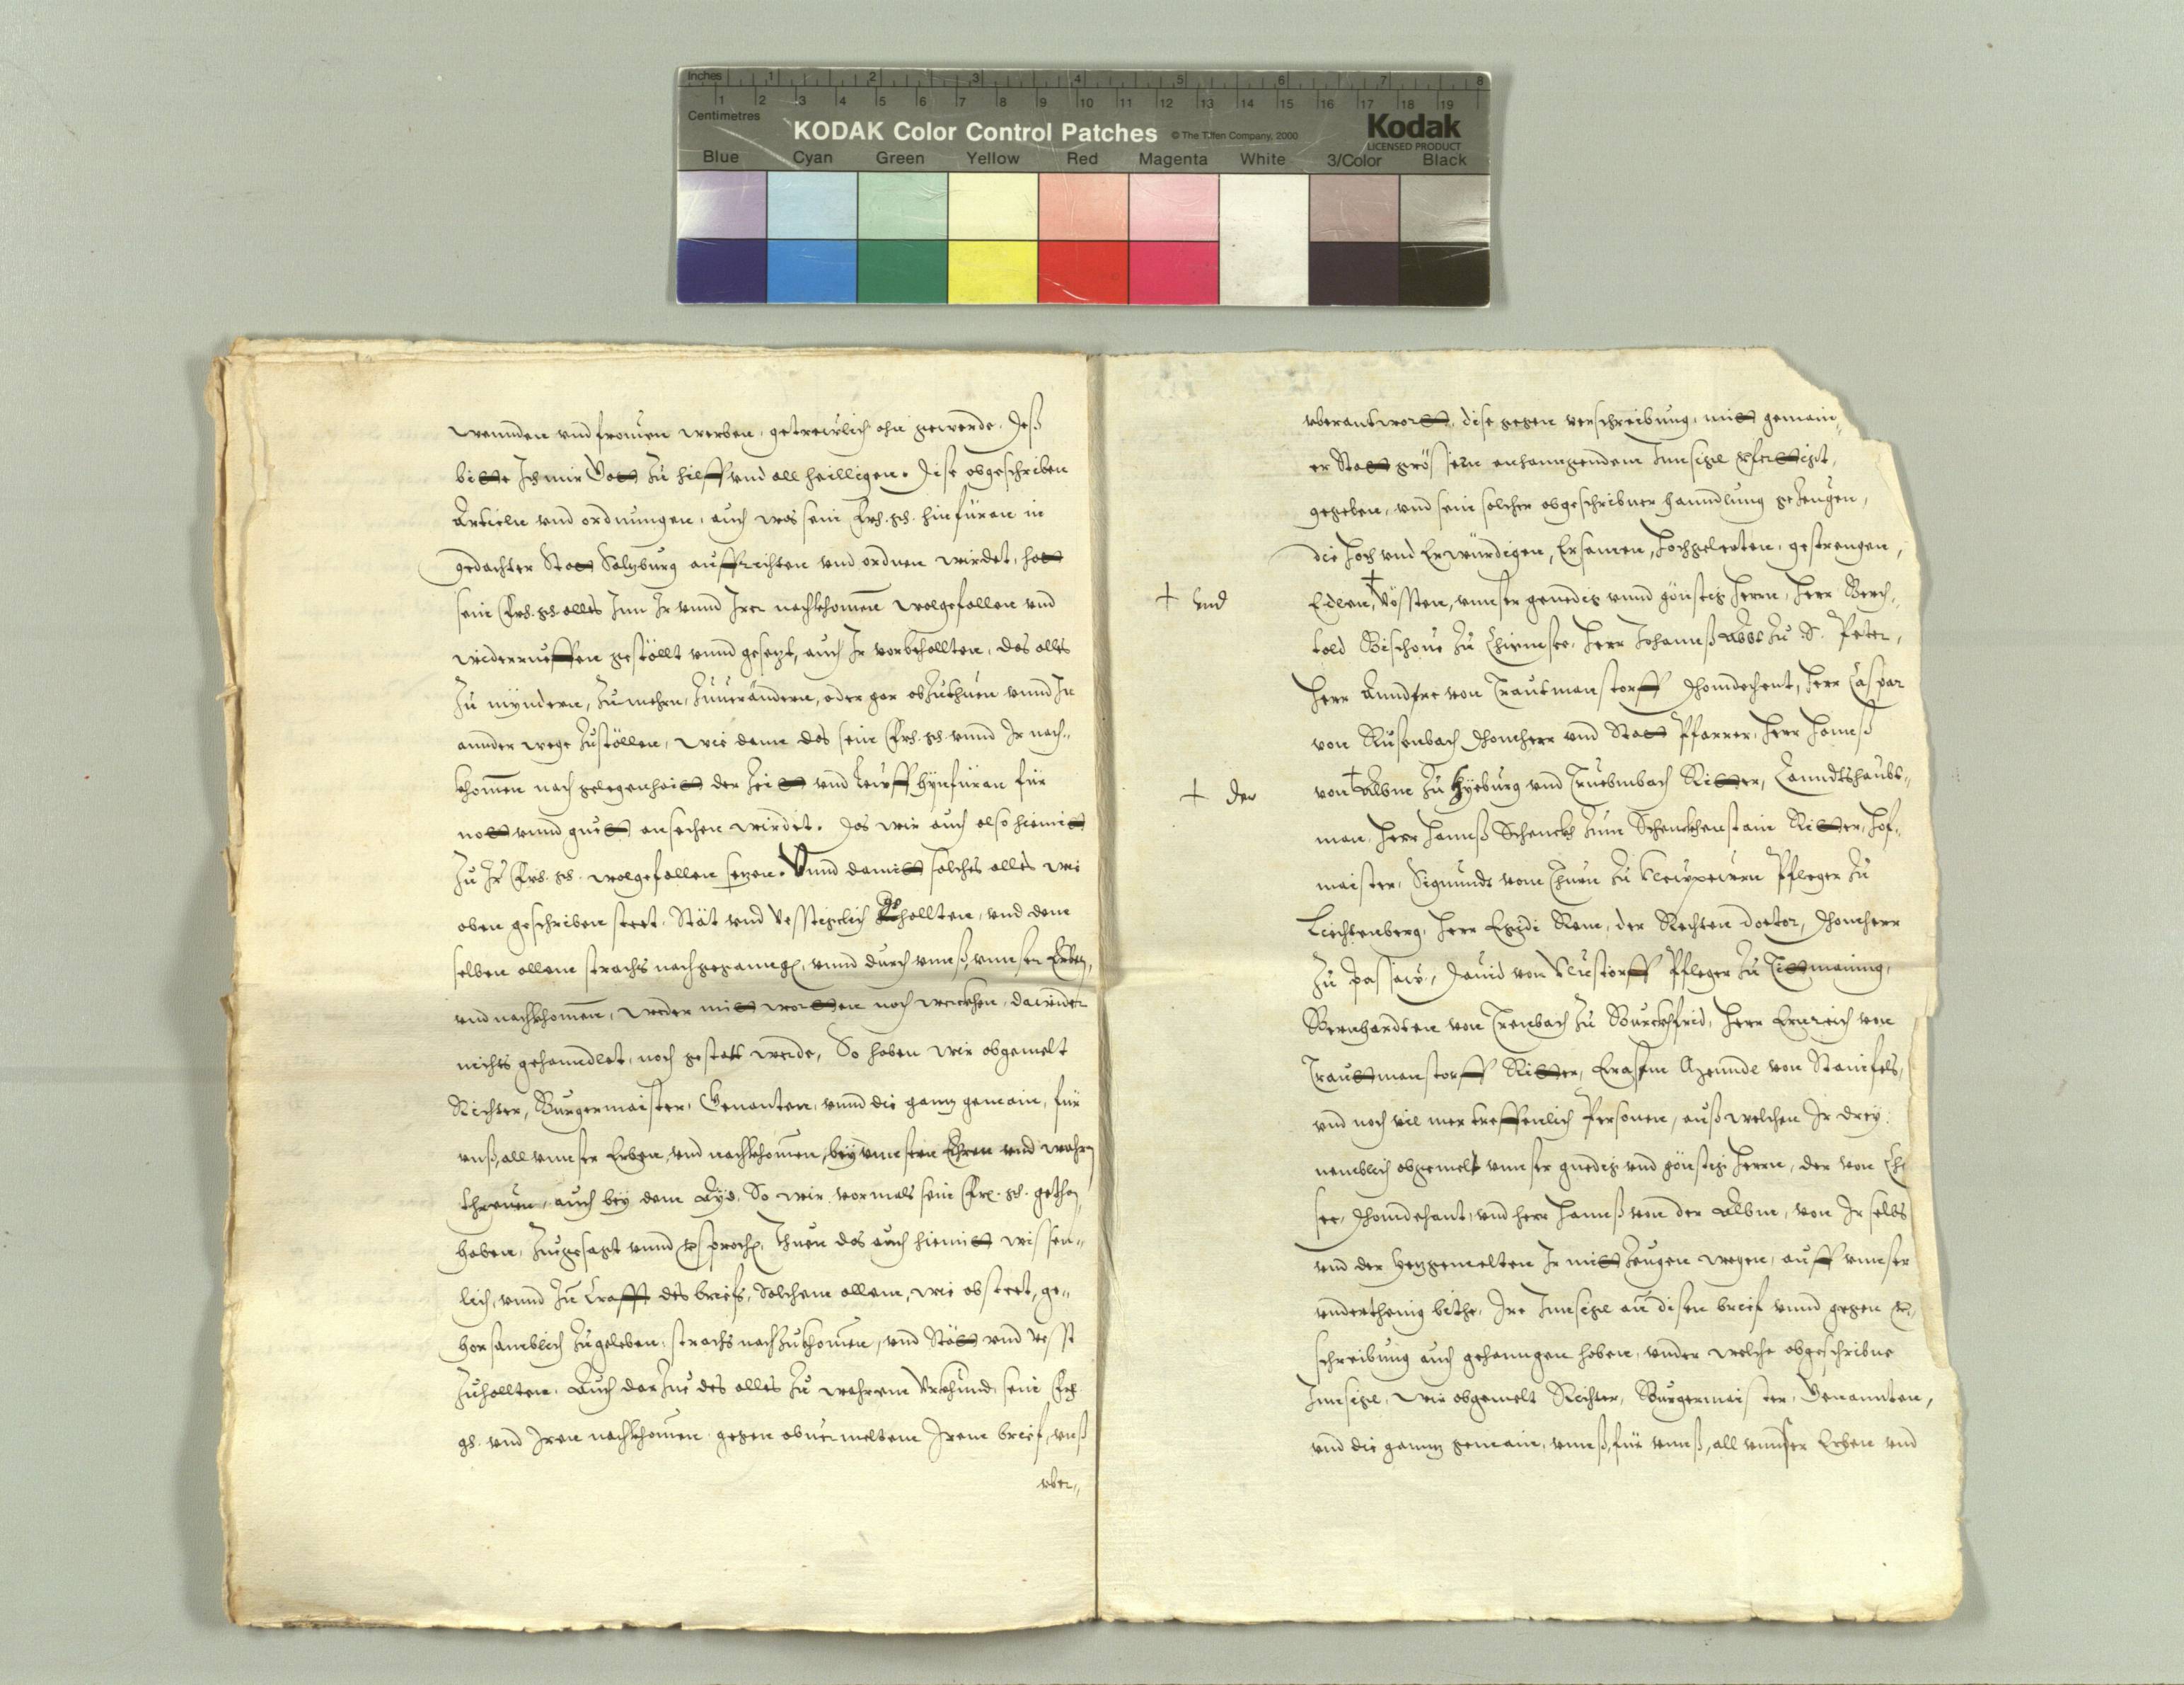 Inches 1 2 3 4 5 6 7 8
Centimetres 1 2 3 4 5 6 7 8 9 10 11 12 13 14 15 16 17 18 19
KODAK Color Control Patches © The Tiffen Company, 2000 Kodak
LICENSED PRODUCT
Blue Cyan Green Yellow Red Magenta White 3/Color Black
wennden vnd fromen werben, getreulich ohn geuerde. Deß
bitte Ich mir Gott zu hilff vnd all heilligen. Dise obgeschriben
Articln vnd ordnungen, auch was sein Frs. gn. hinfüran in
gedachter Statt Salzburg auffrichten vnd ordnen wirdet, hatt
sein Frs. gn. alles Inn Ir vnnd Irer nachkhomen wolgefallen vnd
widerrueffen gestöllt vnnd gesezt, auch Ir vorbehallten, das alles
zu myndern, zu mehrn, zuuerändern, oder gar abzuthuen vnnd In
annder wege zustöllen, wie dann das sein Frs. gn. vnnd Ir nach„
khomen nach gelegenheitt der Zeitt vnd leuff hynfüran für
nott vnnd guett ansechen wirdet. Das wir auch also hiemitt
zu Ir Frs. gn. wolgefallen sezen. Vnnd damitt solches alles wie
oben geschriben steet, Stät vnd vesstigclich gehallten, vnd dem
selben allem strachs nachgegangen, vnnd durch vnnß, vnnser Erben,
vnd nachkhomen, weder mitt wortten noch werckhen, dawider
nichts gehanndlet, noch gestatt werde, So haben wir obgemelt
Richter, Burgermaister, Genanten, vnnd die ganz gemain, für
vnß, all vnnser Erben, vnd nachkhomen, bey vnnsern Ehren vnd wahrn
threuen, auch bey dem Ayd, So wir vormals sein Frs. gn. gethan
haben, zugesagt vnnd versprochen, thuen das auch hiemitt wissen„
lich, vnnd In Crafft des briefs, Solchem allem, wie obsteet, ge„
horsamblich zugeleben, strachs nachzukhomen, vnd Stätt vnd vesst
zuhallten. Auch darzue des alles zu wahrem Vrkhund, sein Frs.
gn. vnd Iren nachkhomen gegen obuermeltem Irem brief, vnß
vber„
vberantwortt, dise gegen verschreibung, mitt gemain„
er Statt grössern anhanngendem Innsigl verfertigt,
gegeben, vnd sein solcher obgeschribner hanndlung gezeugen,
die Hoch vnd Erwürdigen, Ersamen, Hochgelerten, gestrengen,
+ Vnd
Edlen, + Vössten, vnnser genedig vnnd günstig herrn, Herr Berch„
told Bischoue zu Chiemsee, Herr Johannß Abbt zu S. Peter,
Herr Anndre von Trautmanstorff Thomdechent, Herr Caspar
von Rusenbach Thomherr vnd Statt Pfarrer, Herr Hannß
+ der
von + Albm zu Hyeburg vnd Truebmbach Ritter, Lanndtshaubt„
man, Herr Hannß Schenckh zum Schenckhenstain Ritter, Hof„
maister, Sigmundt vom Thurn zu Neupeurn Pfleger zu
Liechtenberg, Herr Egidi Rem, der Rechten doctor, Thomherr
zu Passaw, Dauid von Nustorff Pfleger zu Tittmaning,
Bernhardten von Trenbach zu Burckhfrid, Herr Ernreich von
Trauttmanstorff Ritter, Erasm von Stainfels,
vnd noch vil mer treffenlich Personen, auß welchen Ir drey
nemblich obgemelt vnnser gnedig vnd günstig herrn, der von Ch
see, Thomdechant, vnd herr Hannß von der Albm, von Ir selbs
vnd der yezgemelten Ir mitt Zeugen wegen, auff vnnser
vnderthenig bithe, Ire Innsigl an disen brief vnnd gegen ver„
schreibung auch gehanngen haben, vnder welche obgeschribne
Innsigl, wir obgemelt Richter, Burgermaister, Genannten,
vnd die gannz gemain, vnnß, für vnnß, all vnnser Erben vnd